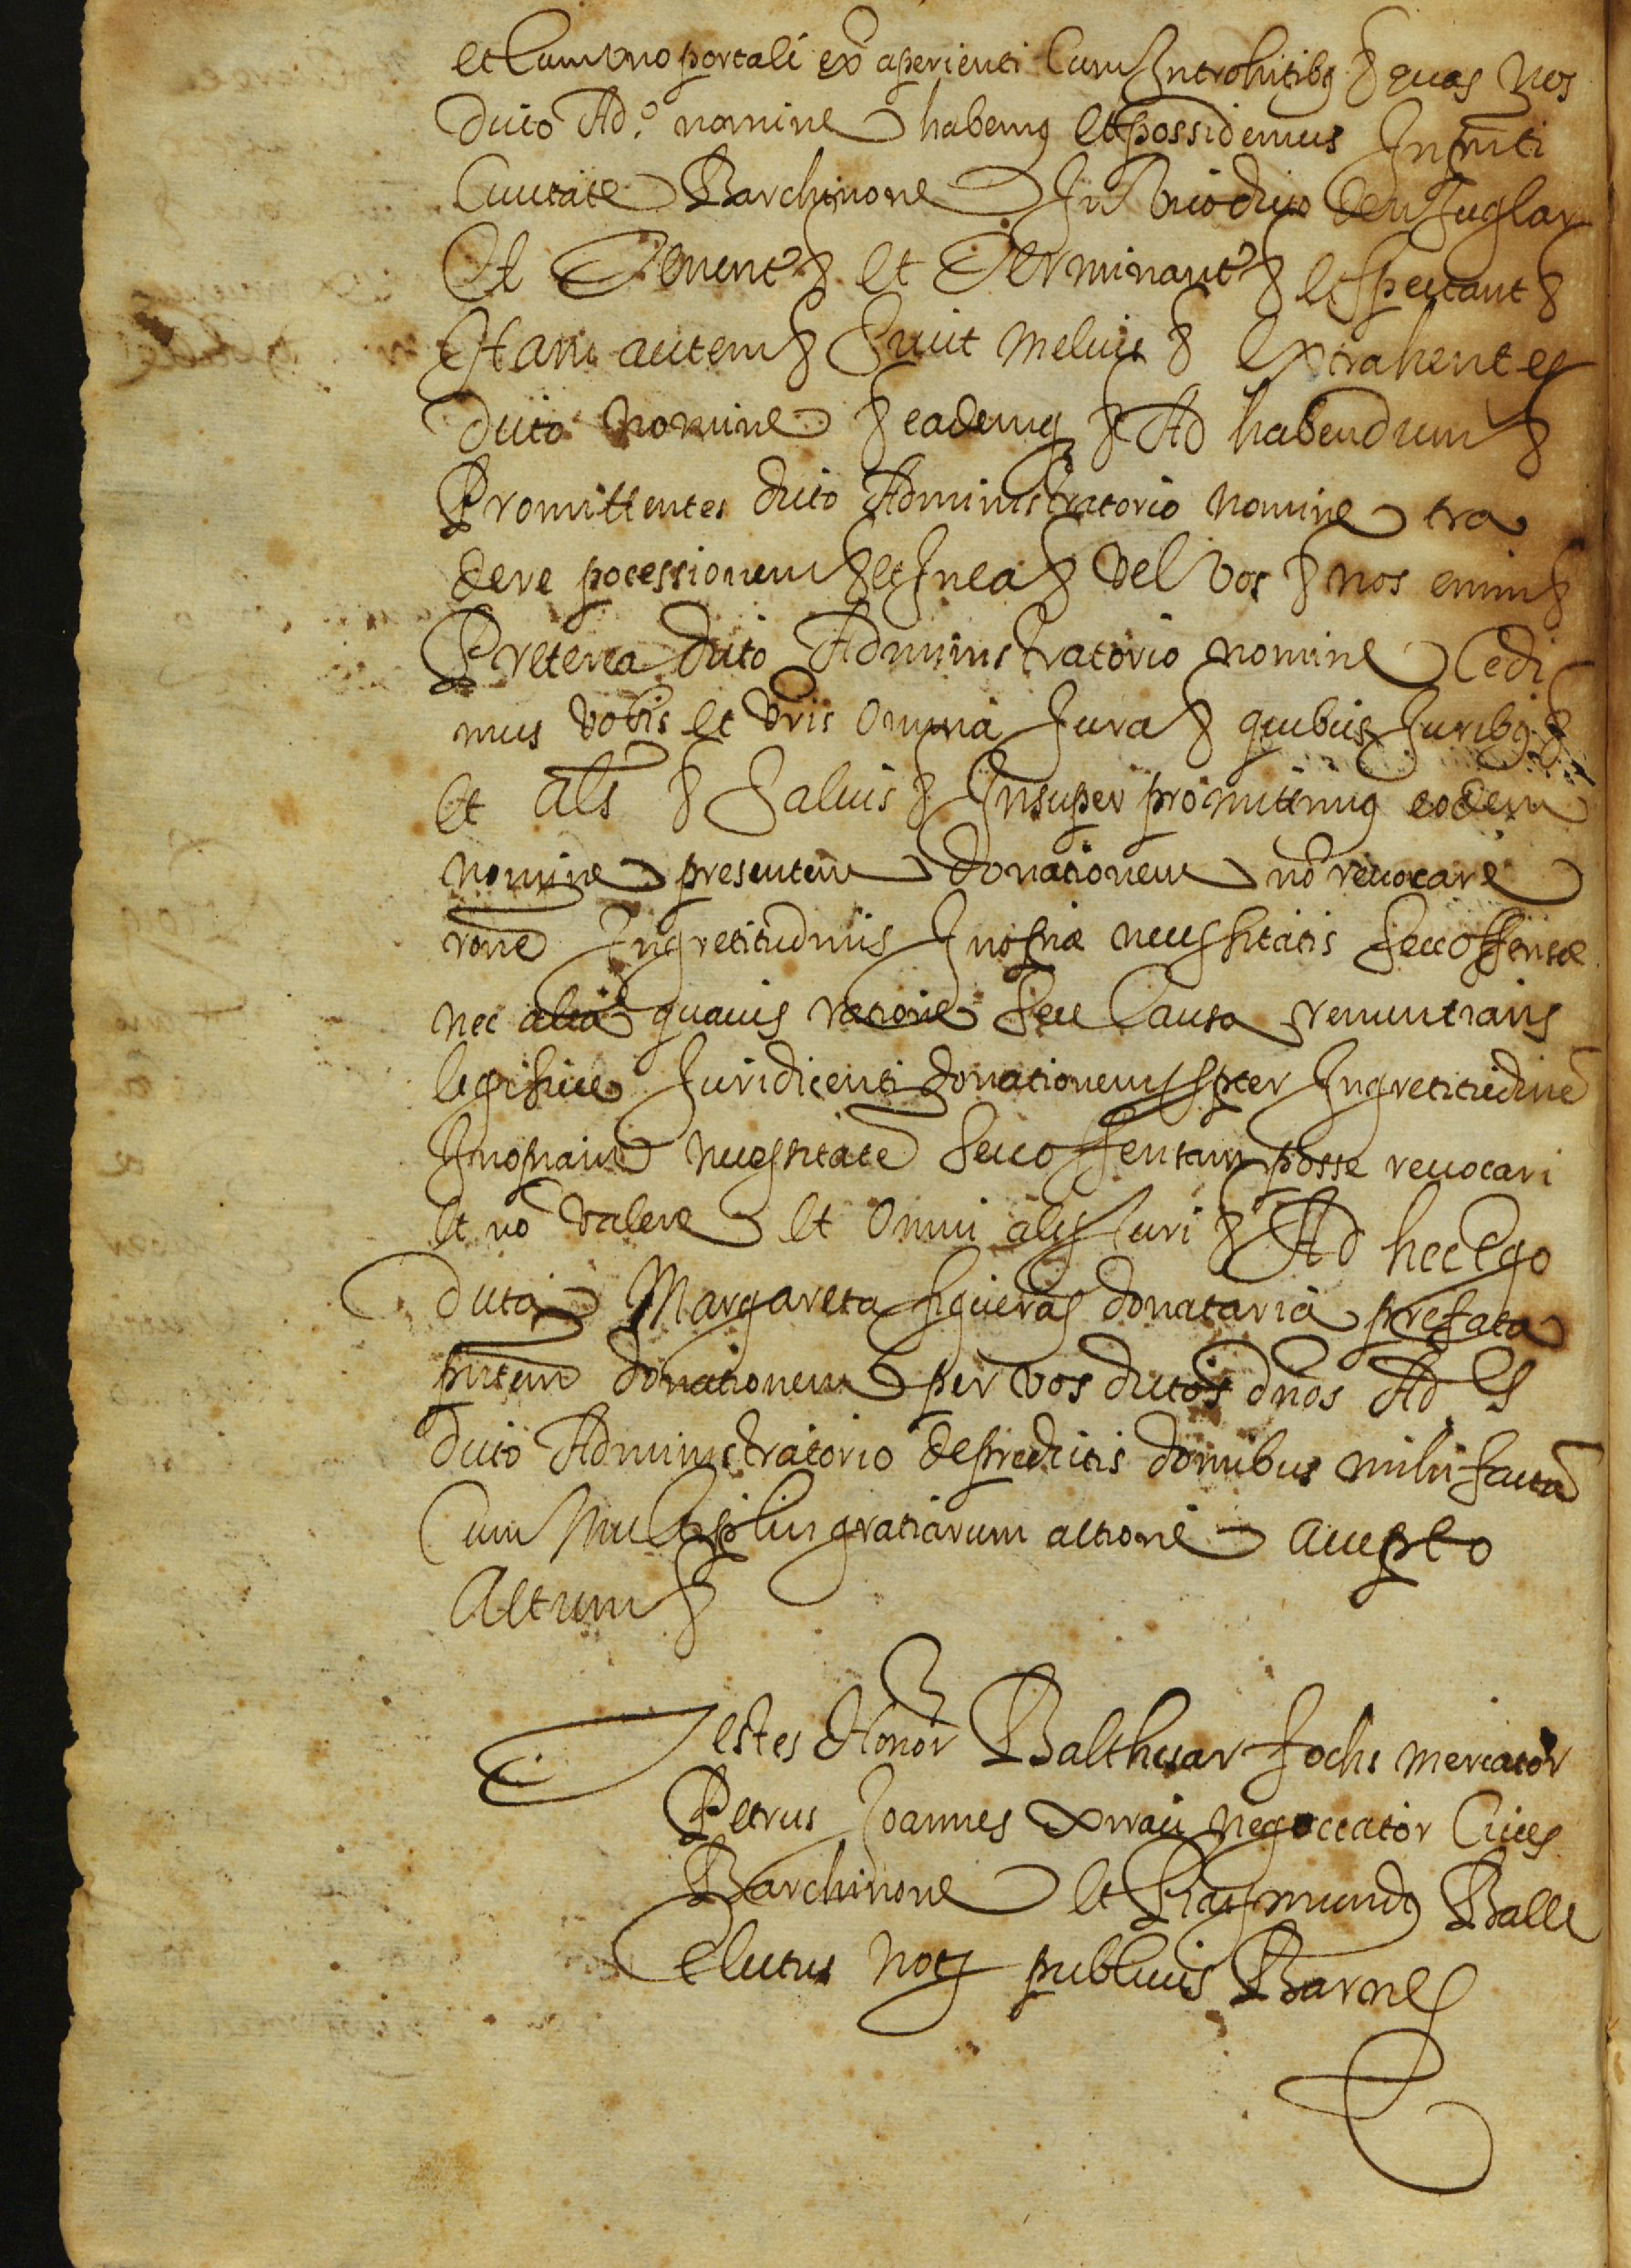 et cum uno portali exº aperienti cum introhitibꝰ & quas nos
dicto Ad.º nomine habemꝰ et possidemus in pñti
Ciuitate Barchinone in vico dicto den Juglar
Et tenent & et terminant & et spectant &
Hanc autem & sicut melius & extrahentes
dicto nomine & eademꝗ & Ad habendum &
Promittentes dicto Administratorio nomine tra
dere pocessionem & et in ea & vel vos & nos enim &
Preterea dicto Administratorio nomine Cedi
mus vobis et vr̃is omnia Jura & quibus Juribꝰ &
et als̃ & saluis & Insuper promittimꝰ eodem
nomine presentem donationem nõ reuocare
rõne Ingretitudinis Inopiæ necessitatis seu offensæ
nec alia quauis ratione seu causa renuntians
legi siue Juri dicenti donationem ppter Ingretitudinẽ
Inopiam necessitatẽ seu offensam posse reuocari
et nõ valere et omni alij Juri & Ad hec Ego
dicta Margareta figueras donataria prefata
pñtem donationem per vos dictos dños Ad.es
dicto Administratorio de predictis domibus mihi factã
Cum multiplici gratiarum actione accepto
Actum &
Testes Honor Balthesar fochs mercator
Petrus Joannes Xrrau negocciator Ciues
Barchinone et Raymundꝰ Balle
Clictus notꝰ publicus Barne